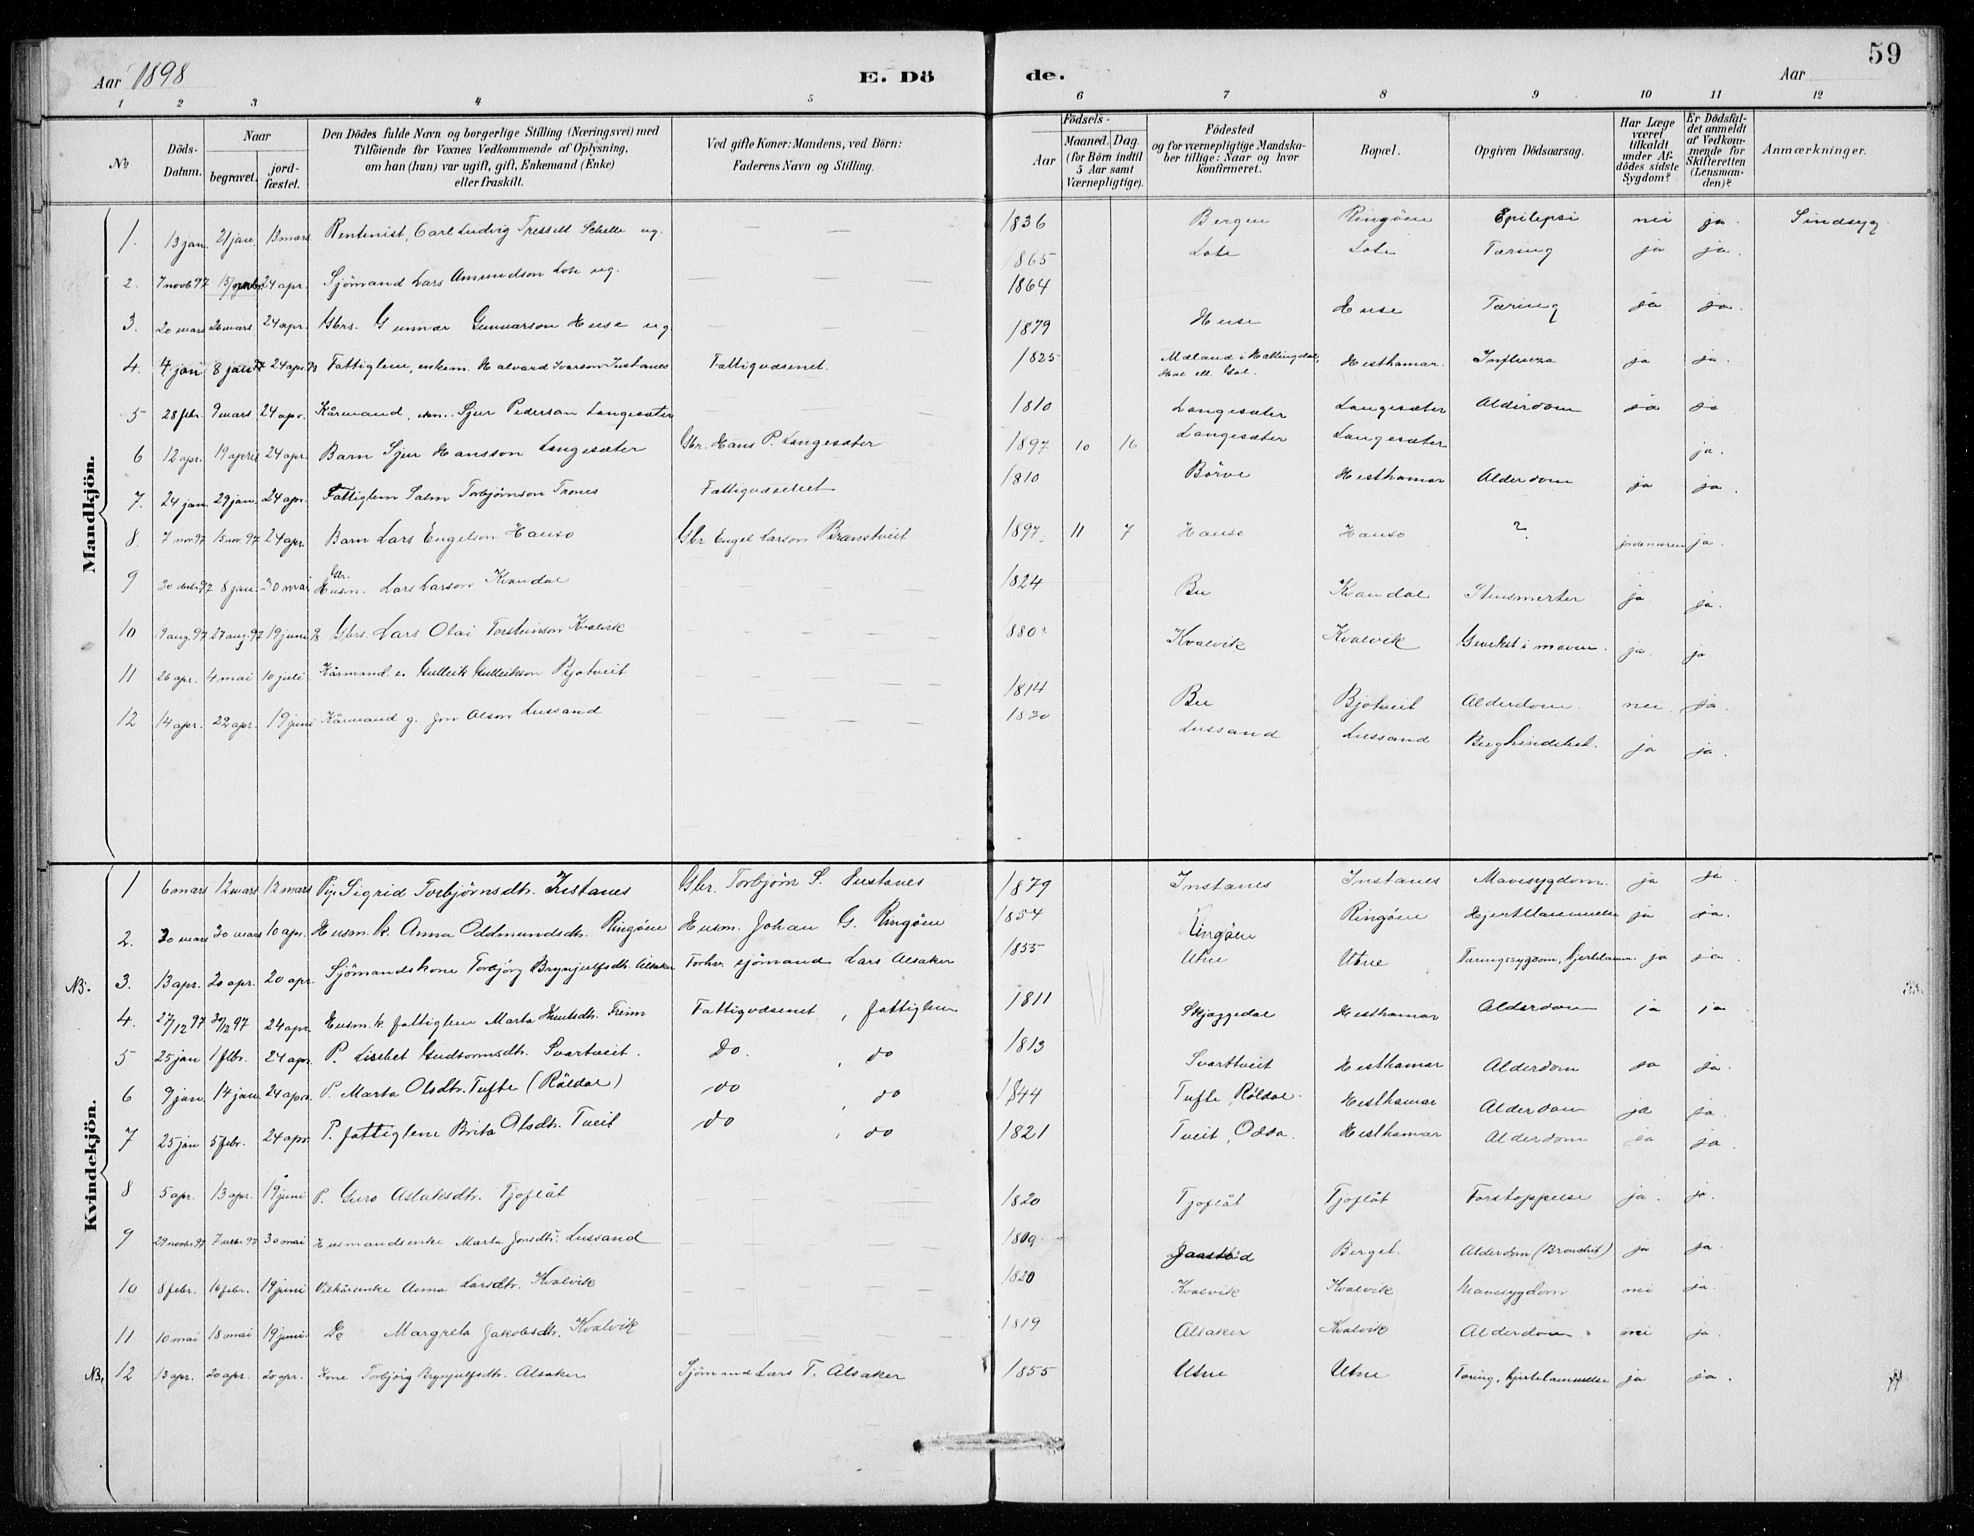 59
Aar 1898
E. Dö de.
Aar
1 2 3 4 5 6 7 8 9 10 11 12
No
Döds-Datum.
Naar
begravet.
jord-fæstet.
Den Dödes fulde Navn og borgerlige Stilling (Næringsvei) med Tilföiende for Voxnes Vedkommende af Oplysning, om han (hun) var ugift, gift, Enkemand (Enke) eller fraskilt.
Ved gifte Koner: Mandens, ved Börn: Faderens Navn og Stilling.
Födsels-
Aar
Maaned.
Dag.
(for Börn indtil 5 Aar samt Værnepligtige).
Födested og for værnepligtige Mandskaber tillige: Naar og hvor konfirmeret.
Bopæl.
Opgiven Dödsaarsag.
Har Læge været tilkaldt under Afdödes sidste Sygdom?
Er Dödsfaldet anmeldt af Vedkommende for Skifteretten (Lensmanden)?
Anmærkninger.
Mandkjön.
1. 13 jan. 21 jan. 13 mars Rentenist, Carl Ludvig Schelle ug. — 1836 Bergen Ringöen Epilepsi nei ja. Sindsyg
2. 7 novb 97 24 apr. Sjömand Lars Amundson Lote ug. — 1865 1864 Lote Lote Tæring ja ja.
3. 20 mars 26 mars 24 apr. Gbrs. Gunnar Gunnarson Huse ug. — 1879 Huse Huse Tæring ja ja.
4. 4 jan 8 jan 24 apr. Fattiglem, enkem. Halvard Ivarson Instanes Fattigvæsenet. 1825 Mæland i Hallingdal, Hol ell. Gol. Hesthamar. Influenza ja ja.
5 28 febr. 9 mars 24 apr. Kårmand, Sjur Pederson Langesæter — 1810 Langesæter Langesæter Alderdom ja ja
6 12 apr. 19 april 24 apr. Barn Sjur Hansson Langesæter Gbr. Hans P. Langesæter 1897 10 16 Langesæter Langesæter ja.
7. 24 jan. 29 jan. 24 apr. Fattiglem Salm Torbjörnson Trones Fattigvæsenet 1810 Börve Hesthamar Alderdom ja ja.
8. 7 nov 97 15 nov. 97 24 apr. Barn Lars Engelson Hauso Gbr Engel Larson Branstveit 1897. 11 7 Hauso Hauso ? ja.
9 30 decbr. 97 8 jan. 30 mai Gbr. Husm. Lars Larson Kvandal — 1824 Bu Kvandal Stensmerter ja ja.
10 9 aug. 97 27 aug. 97 19 juni Gbrs. Lars Olai Torsteinson Kvalvik — 880 Kvalvik Kvalvik Gevekst i maven. ja. ja
11 26 apr. 4 mai 10 juli Kårmand e. Gulleik Gulleikson Bjotveit — 1814 Bu Bjotveit Alderdom. nei ja.
12 14 apr. 22 apr. 19 juni Kårmand g. Jon Olson Lussand — 1820 Lussand Lussand ja ja.
Kvindekjön.
1 6 mars 12 mars 13 mars Pige Sigrid Torbjörnsdtr. Instanes Gbr. Torbjörn S. Instanes 1879 Instanes Instanes Mavesygdom. ja ja.
2. 20 mars 30 mars 10 apr. Husm. k. Anna Oddmundsdtr. Ringöen Husm. Johan G. Ringöen 1854 Ringöen Ringöen Hjertelammelse ja ja.
NB. 3. 13 apr. 20 apr. 20 apr. Sjömandskone Torbjörg Brynjulfsdtr. Alsaker Forhv. sjömand Lars Alsaker 1855 Utne Utne Tæringssygdom, hjertelam. ja ja.
4. 27/12 97 30/12 97 24 apr. Husm. k fattiglem Marta Knutsdtr. Freim Fattigvæsenet, fattiglem 1811 Skjæggedal Hesthamar Alderdom ja ja
5 25 jan 1 febr. 24 apr. P. Lisebet Gudtormsdtr. Svartveit. Do., do 1813 Svartveit Hesthamar Alderdom ja ja.
6 9 jan. 14 jan. 24 apr. P. Marta Olsdtr. Tufte (Röldal) do, do 1844 Tufte, Röldal. Hesthamar Alderdom ja ja.
7 25 jan 5 febr. 24 apr. P. fattiglem Brita Olsdtr. Tveit do, do 1821 Tveit, Odda. Hesthamar Alderdom ja ja.
8 5 apr. 13 apr. 19 juni P. Guro Aslaksdtr. Tjoflåt — 1820 Tjoflåt Tjoflåt Forstoppelse ja. ja.
9 29 novbr 97 7 decbr 97 30 mai Husmandsenke Marta Jonsdtr. Lussand — 1809 Jaastad Berget. Alderdom (Bronchit) ja ja.
10 8 febr. 16 febr. 19 juni Vilkårsenke Anna Larsdtr. Kvalvik — 1820 Kvalvik Kvalvik Mavesygdom nei ja.
11 10 mai 18 mai 19 juni. Do Margreta Jakobsdtr. Kvalvik — 1819 Alsaker Kvalvik Alderdom. nei ja.
NB. 12 13 apr. 20 apr. 20 apr. Kone Torbjörg Brynjulfsdtr. Alsaker Sjömand Lars T. Alsaker 1855 Utne Utne Tæring, hjertelammelse ja ja.